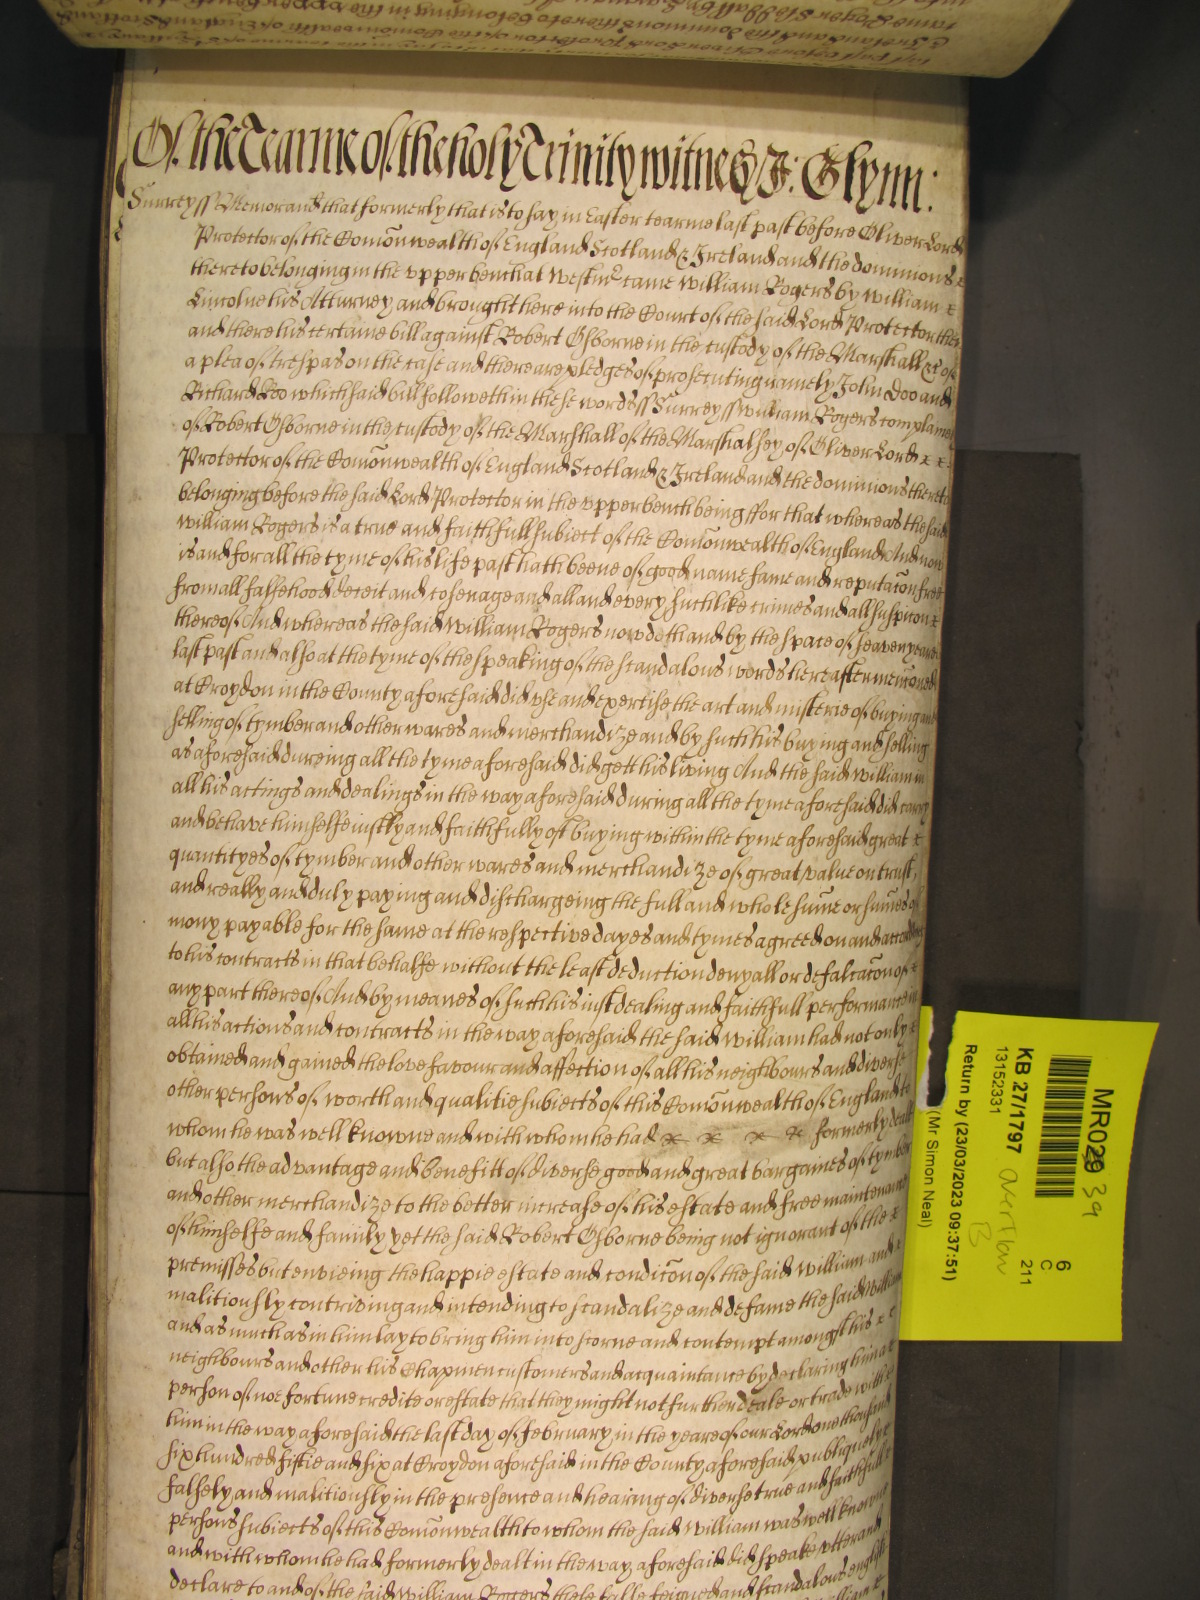 Of the Tearme of the holy Trinity witnes J: Glynn:
Surrey ss Memorand that formerly that is to say in Easter tearme last past before Oliver Lord
Protector of the Comōnwealth of England Scotland & Ireland and the dominions
thereto belonging in the vpper bench at Westmr came William Rogers by William
Lincolne his Atturney and brought here into the Court of the said Lord Protector then
and there his certaine bill against Robert Osborne in the custody of the Marshall &c of
a plea of trespas on the case and there are pledges of prosecuting namely John Doo and
Richard Roo which said bill followeth in these words ss Surrey ss William Rogers complaines
of Robert Osborne in the custody of the Marshall of the Marshalsey of Oliver Lord
Protector of the Comōnwealth of England Scotland & Ireland and the dominions thereto
belonging before the said Lord Protector in the vpper bench being ffor that whereas the said
William Rogers is a true and faithfull subiect of the Comōnwealth of England And now
is and for all the tyme of his life past hath beene of good name fame and reputacōn free
from all falsehood deceit and cosenage and all and every such like crimes and all suspicon
thereof And whereas the said William Rogers now doth and by the space of seaven yeares
last past and also at the tyme of the speaking of the scandalous words hereafter mencōned
at Croydon in the County aforesaid did vse and exercise the art and misterie of buying and
selling of tymber and other wares and merchandize and by such his buying and selling
as aforesaid dureing all the tyme aforesaid did gett his living And the said William in
all his actings and dealings in the way aforesaid during all the tyme aforesaid did carry
and behave himselfe iustly and faithfully oft buying within the tyme aforesaid great
quantityes of tymber and other wares and merchandize of great value on trust,
and really and duly paying and dischargeing the full and whole sum̄e or sum̄es of
mony payable for the same at the respective dayes and tymes agreed on and according
to his contracts in that behalfe without the least deduction denyall or defalcacōn of
any part thereof And by meanes of such his iust dealing and faithfull performance in
all his actions and contracts in the way aforesaid the said William had not only
obtained and gained the love favour and affection of all his neighbours and diverse
other persons of worth and qualitie subiects of this Comōnwealth of England to
whom he was well knowne and with whom he had formerly dealt
but also the advantage and benefitt of diverse good and great bargaines of tymber
and other merchandize to the better increase of his estate and free maintenance
of himselfe and family yet the said Robert Osborne being not ignorant of the
premisses but envieing the happie estate and condicōn of the said William and
malitiously contriving and intending to scandalize and defame the said William
and as much as in him lay to bring him into scorne and contempt amongst his
neighbours and other his Chapmen customers and acquaintance by declaring him a
person of noe fortune credite or estate that they might not further deale or trade with
him in the way aforesaid the last day of February in the yeare of our Lord one thousand
six hundred fiftie and six at Croydon aforesaid in the County aforesaid publiquely
falsely and malitiously in the presence and hearing of diverse true and faithfull
persons subiects of this Comōnwealth to whom the said William was well knowne
and with whom he had formerly dealt in the way aforesaid did speake vtter and
declare to and of the said William Rogers these false feigned and scandalous english
MR029 39
6
C
211
KB 27/1797
13152331
Overflow
B
Return by (23/03/2023 09:37:51)
(Mr Simon Neal)